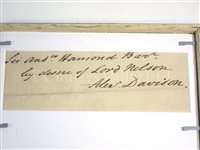 Sir And.ʷ Hamond Barᵗ.
by desire of Lord Nelson
Alexʳ Davison.